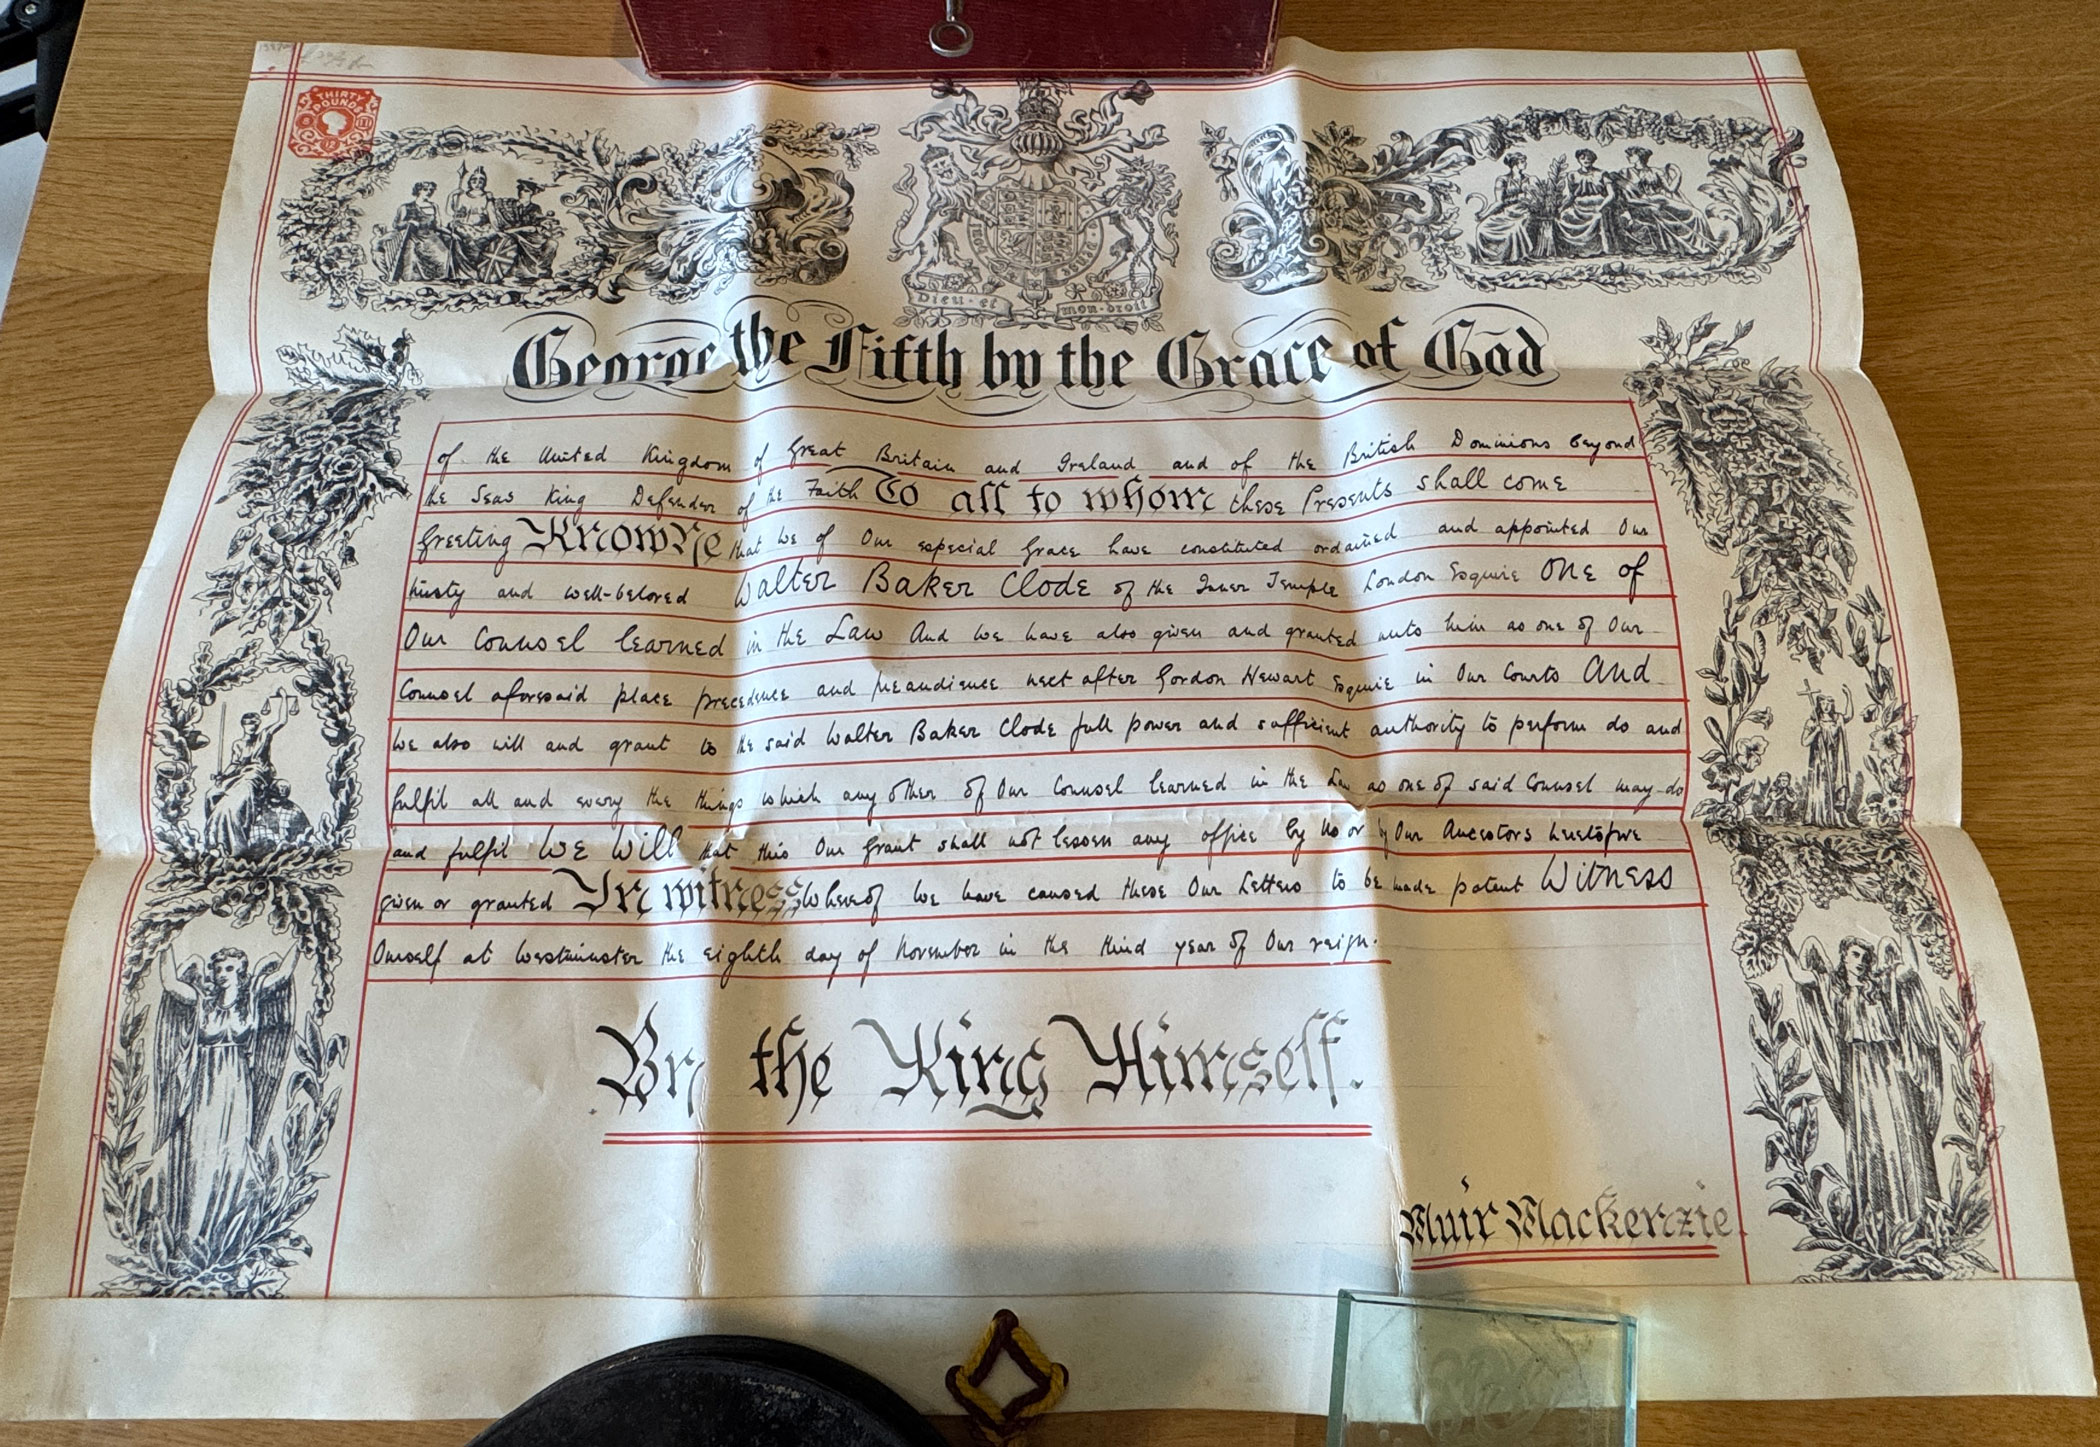 THIRTY
POUNDS
Dieu et mon droit
George the Fifth by the Grace of God
of the United Kingdom of Great Britain and Ireland and of the British Dominions beyond
the Seas King Defender of the Faith To all to whom these Presents shall come
Greeting Know Ye that We of Our especial Grace have constituted ordained and appointed Our
trusty and well-beloved Walter Baker Clode of the Inner Temple London Esquire One of
Our Counsel learned in the Law And We have also given and granted unto him as one of Our
Counsel aforesaid place precedence and preaudience next after Gordon Hewart Esquire in Our Courts And
We also will and grant to the said Walter Baker Clode full power and sufficient authority to perform do and
fulfil all and every the things which any other of Our Counsel learned in the Law as one of said Counsel may do
and fulfil We Will that this Our Grant shall not lessen any office by Us or by Our Ancestors heretofore
given or granted In witness Whereof We have caused these Our Letters to be made patent Witness
Ourself at Westminster the eighth day of November in the third year of Our reign.
By the King Himself.
Muir Mackenzie.